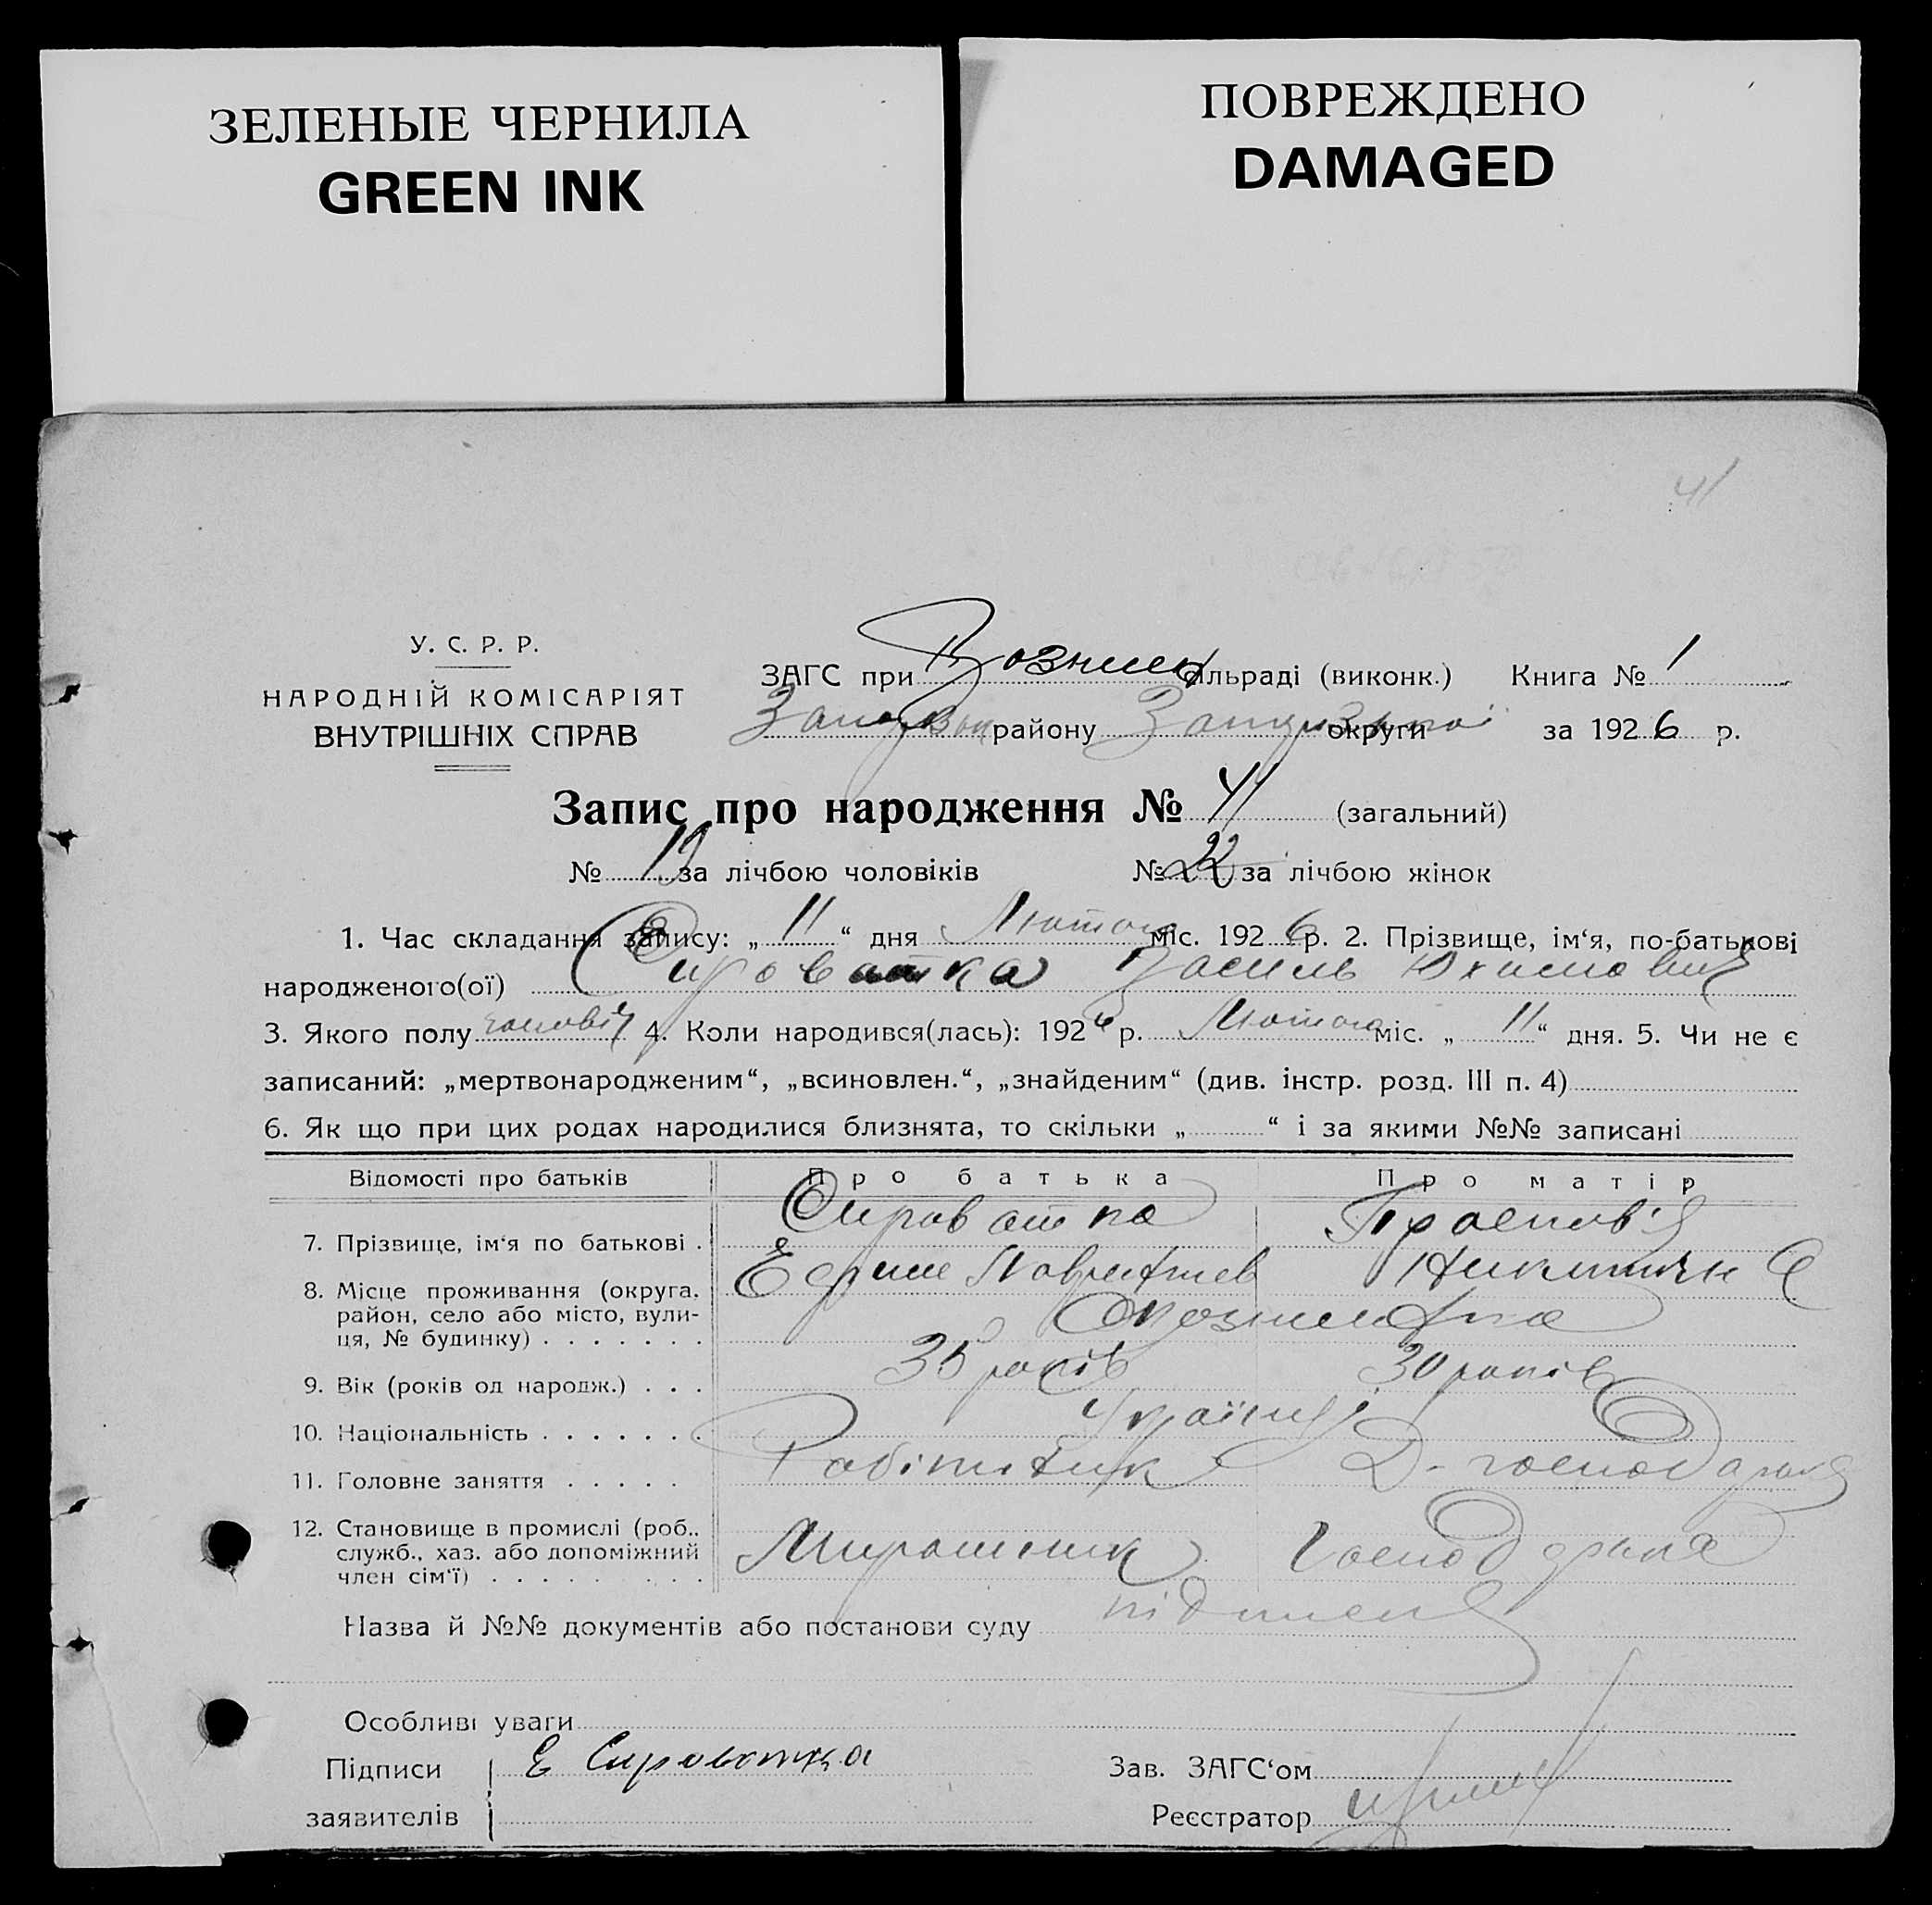 ЗЕЛЕНЫЕ ЧЕРНИЛА
GREEN INK
ПОВРЕЖДЕНО
DAMAGED
41
У. С. Р. Р.
НАРОДНІЙ КОМІСАРІЯТ
ВНУТРІШНІХ СПРАВ
ЗАГС при Вознесен сільраді (виконк.) Книга № 1
району округи за 1926 р.
Запис про народження № 41 (загальний)
№ 19 за лічбою чоловіків № 22 за лічбою жінок
1. Час складання запису: „11“ дня Лютого міс. 1926 р. 2. Прізвище, ім‘я, по-батькові
народженого(ої) Сироватка Василь Юхимович
3. Якого полу чоловіч 4. Коли народився(лась): 1926 р. Лютого міс. „11“ дня. 5. Чи не є
записаний: „мертвонародженим“, „всиновлен.“, „знайденим“ (див. інстр. розд. III п. 4)
6. Як що при цих родах народилися близнята, то скільки „ “ і за якими №№ записані
Відомості про батьків Про батька Про матір
Сироватка
7. Прізвище, ім‘я по батькові .
8. Місце проживання (округа, район, село або місто, вулиця, № будинку) . . . . . . .
9. Вік (років од народж.) . . . 35 років 30 років
10. Національність . . . . . . . Українці
11. Головне заняття . . . . . Робітник Д-господарка
12. Становище в промислі (роб., служб., хаз. або допоміжний член сім‘ї) . . . . . . . . . Мирошник Господарка
Назва й №№ документів або постанови суду
Особливі уваги
Підписи Е Сироватка Зав. ЗАГС‘ом
заявителів Реєстратор